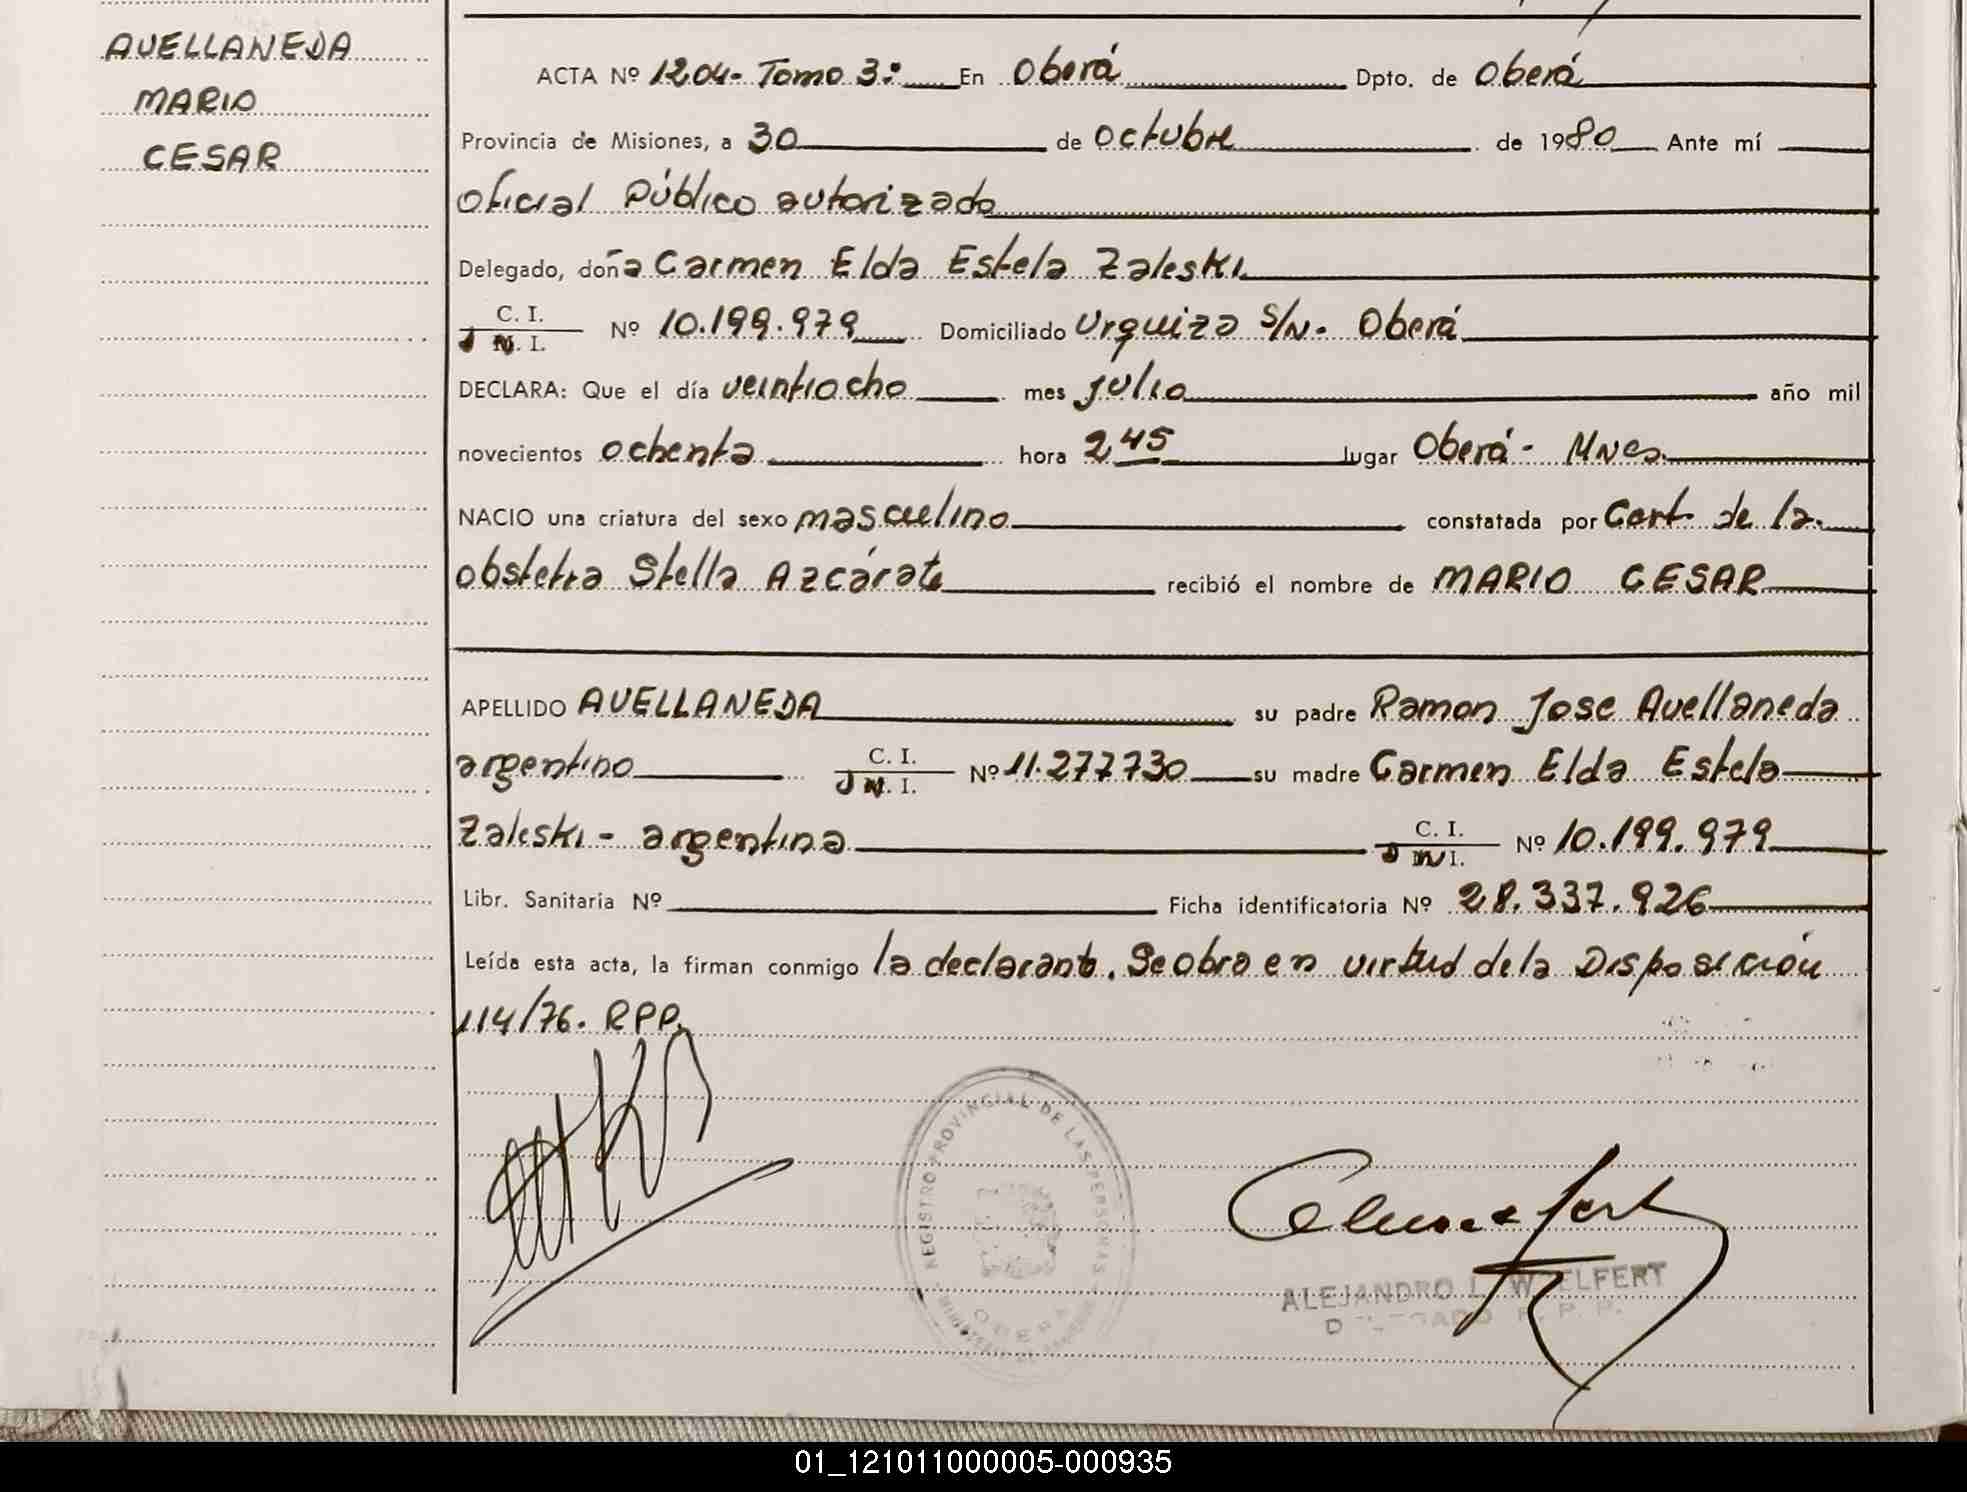 AVELLANEDA
MARIO
CESAR
ACTA Nº 1204- Tomo 3º En Oberá Dpto. de Oberá
Provincia de Misiones, a 30 de octubre de 1980 Ante mí
oficial Público autorizado
Delegado, doña Carmen Elda Estela Zaleski
C. I.
D N. I. Nº 10.199.979 Domiciliado Urquiza S/N- Oberá
DECLARA: Que el día veintiocho mes julio año mil
novecientos ochenta hora 2 45 lugar Oberá- Mnes.
NACIO una criatura del sexo masculino constatada por Cert. de la
obstetra Stella Azcárate recibió el nombre de MARIO CESAR
APELLIDO AVELLANEDA su padre Ramon Jose Avellaneda
argentino C. I. D N. I. Nº 11.277730 su madre Carmen Elda Estela
Zaleski - argentina C. I. D N I. Nº 10.199.979
Libr. Sanitaria Nº Ficha identificatoria Nº 28.337.926
Leída esta acta, la firman conmigo la declarante. Se obra en virtud de la Disposición
114/76. RPP.
REGISTRO PROVINCIAL DE LAS PERSONAS
OBERA
ALEJANDRO L. WOELFERT
DELEGADO R. P. P.
01_121011000005-000935